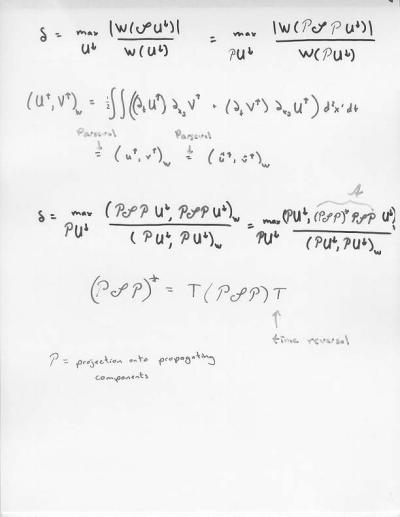 δ = max_{U↓} |W(𝒮U↓)| / W(U↓) = max_{𝒫U↓} |W(𝒫𝒮𝒫U↓)| / W(𝒫U↓)
(U↑, V↑)_w = ½∫∫∫((∂_t U↑) ∂_{x_3} V↑ + (∂_t V↑) ∂_{x_3} U↑) d²x' dt
Parseval Parseval
↓= (u↑, v↑)_w ↓= (ũ↑, ṽ↑)_w
A
δ = max_{𝒫U↓} (𝒫𝒮𝒫U↓, 𝒫𝒮𝒫U↓)_w / (𝒫U↓, 𝒫U↓)_w = max_{𝒫U↓} (𝒫U↓, (𝒫𝒮𝒫)* 𝒫𝒮𝒫 U↓) / (𝒫U↓, 𝒫U↓)_w
(𝒫𝒮𝒫)* = T(𝒫𝒮𝒫)T
↑
time reversal
𝒫 = projection onto propagating
components